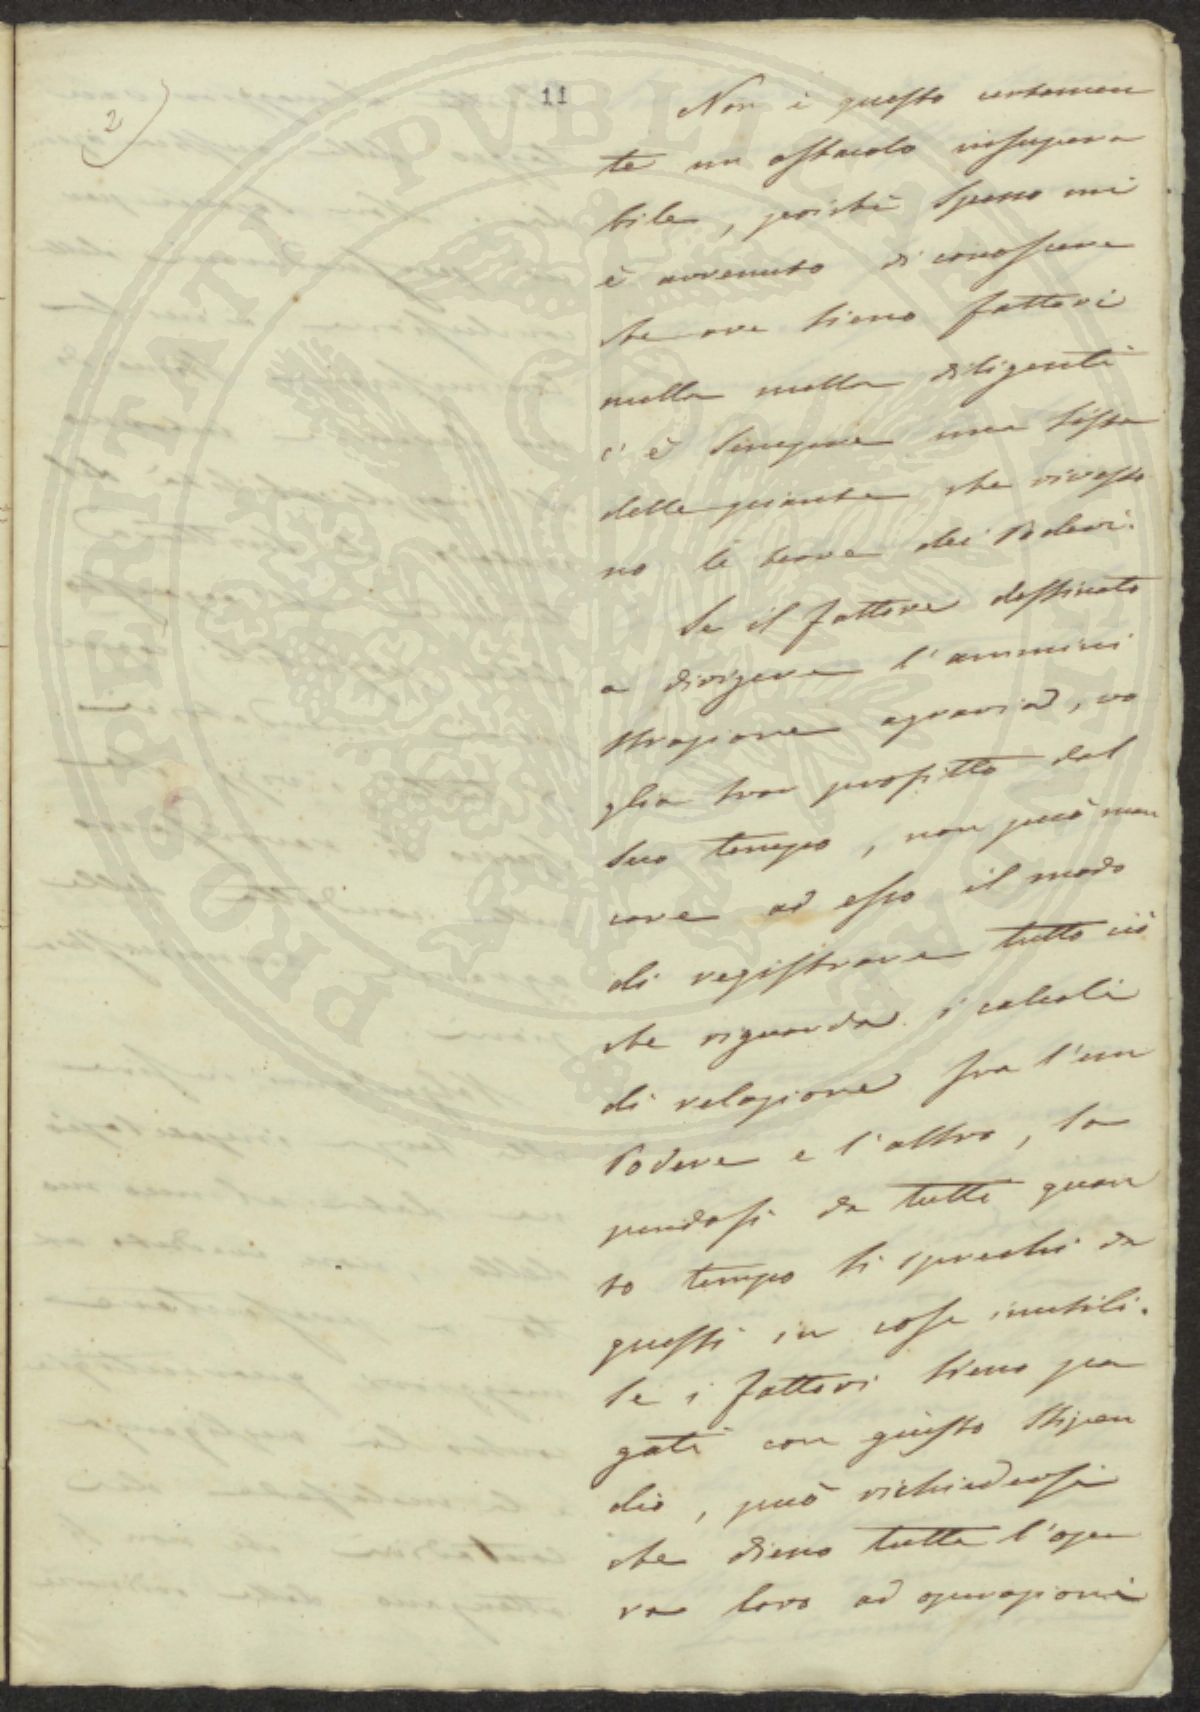 2)
11
Non è questo certamen
te un ostacolo insupera
bile, poichè spesso mi
è avvenuto di conoscere
che ove sieno fattori
nulla nulla diligenti
c'è sempre una lista
delle piante che rivesto
no le terre dei Poderi.
Se il fattore destinato
a dirigere l'ammini
strazione agraria, vo
glia trar profitto dal
suo tempo, non può man
care ad esso il modo
di registrare tutto ciò
che riguarda i calcoli
di relazione fra l'un
Podere e l'altro, sa
pendosi da tutti quan
to tempo si sprechi da
questi in cose inutili.
Se i fattori sieno pa
gati con giusto stipen
dio, può richiedersi
che dieno tutta l'ope
ra loro ad operazioni
PROSPERITATI PVBLICAE AVGENDAE